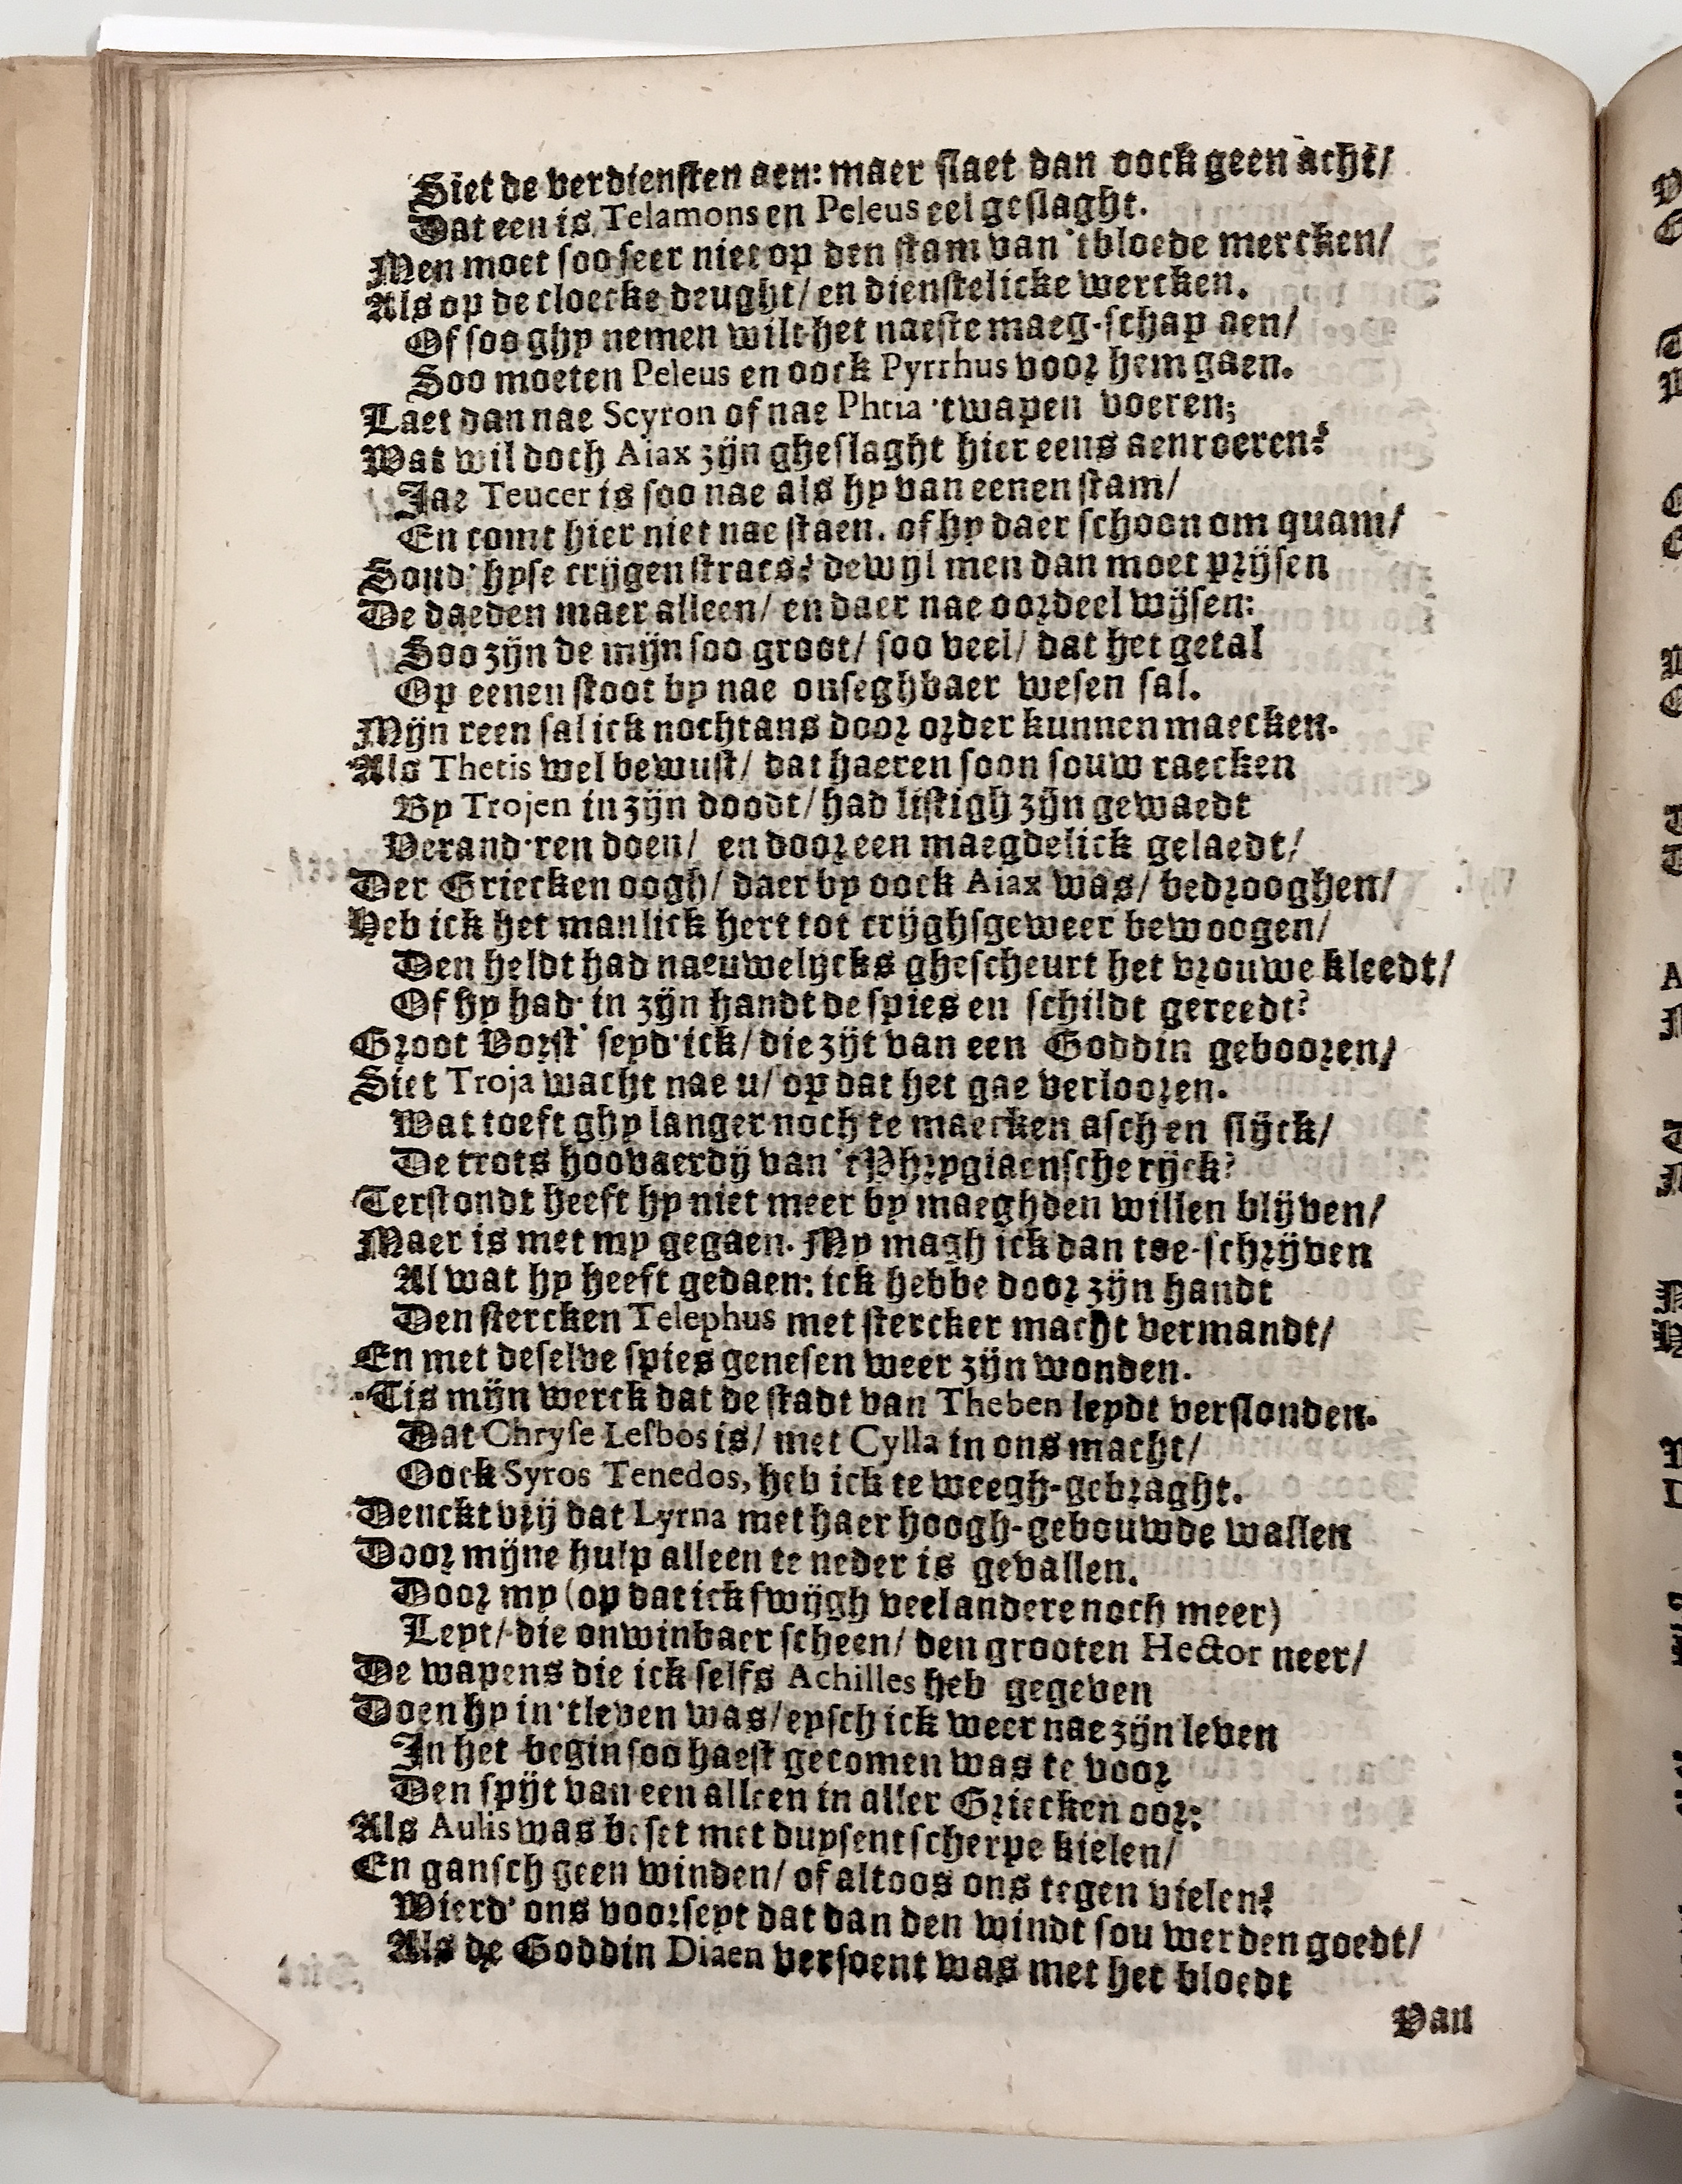 Siet de verdiensten aen: maer slaet dan oock geen acht/
Dat een is Telamons en Peleus eel geslaght.
Men moet soo seer niet op den stam van 'tbloede mercken/
Als op de cloecke deught/ en dienstelicke wercken.
Of soo ghy nemen wilt het naeste maeg-schap aen/
Soo moeten Peleus en oock Pyrrhus voor hem gaen.
Laet dan nae Scyron of nae Phtia 'twapen voeren;
Wat wil doch Aiax zijn gheslaght hier eens aenroeren?
Jae Teucer is soo nae als hy van eenen stam/
En comt hier niet nae staen. of hy daer schoon om quam/
Soud' hyse crijgen stracs? dewyl men dan moet prijsen
De daeden maer alleen/ en daer nae oordeel wijsen:
Soo zijn de mijn soo groot/ soo veel/ dat het getal
Op eenen stoot by nae onseghbaer wesen sal.
Mijn reen sal ick nochtans door order kunnen maecken.
Als Thetis wel bewust/ dat haeren soon souw raecken
By Trojen in zijn doodt/ had listigh zijn gewaedt
Verand'ren doen/ en door een maegdelick gelaedt/
Der Griecken oogh/ daer by oock Aiax was/ bedrooghen/
Heb ick het manlick hert tot crijghsgeweer bewoogen/
Den heldt had naeuwelijcks ghescheurt het vrouwe kleedt/
Of hy had' in zijn handt de spies en schildt gereedt?
Groot Vorst' seyd'ick/ die zijt van een Goddin gebooren/
Siet Troja wacht nae u/ op dat het gae verlooren.
Wat toeft ghy langer noch te maecken asch en slijck/
De trots hoovaerdij van 'tPhrygiaensche rijck?
Terstondt heeft hy niet meer by maeghden willen blijven/
Maer is met my gegaen. My magh ick dan toe-schrijven
Al wat hy heeft gedaen: ick hebbe door zijn handt
Den stercken Telephus met stercker macht vermandt/
En met deselve spies genesen weer zijn wonden.
'Tis mijn werck dat de stadt van Theben leydt verslonden.
Dat Chryse Lesbos is/ met Cylla in ons macht/
Oock Syros Tenedos, heb ick te weegh-gebraght.
Denckt vrij dat Lyrna met haer hoogh-gebouwde wallen
Door mijne hulp alleen te neder is gevallen.
Door my (op dat ick swijgh veel andere noch meer)
Leyt/ die onwinbaer scheen/ den grooten Hector neer/
De wapens die ick selfs Achilles heb gegeven
Doen hy in'tleven was/ eysch ick weer nae zijn leven
In het begin soo haest gecomen was te voor
Den spijt van een alleen in aller Griecken oor:
Als Aulis was beset met duysent scherpe kielen/
En gansch geen winden/ of altoos ons tegen vielen?
Wierd' ons voorseyt dat dan den windt sou werden goedt/
Als de Goddin Diaen versoent was met het bloedt
Van